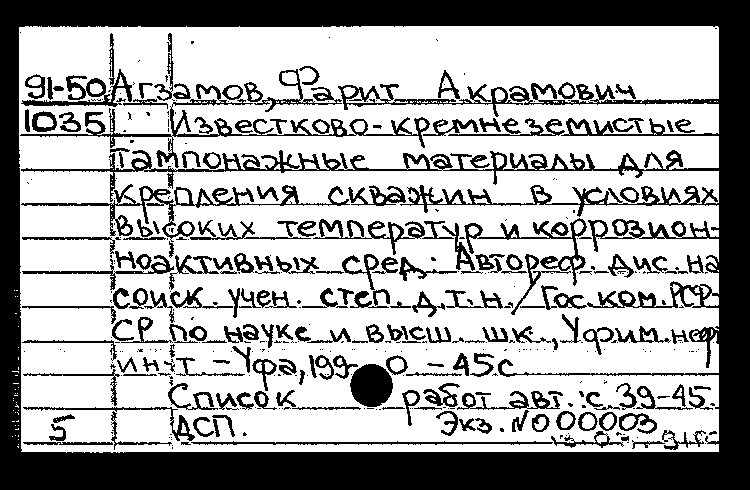 91-50 Агзамов, Фарит Акрамович
1035 Известково-кремнеземистые
тампонажные материалы для
крепления скважин в условиях
высоких температур и коррозион-
ноактивных сред: Автореф. дис. на
соиск. учен. степ. д.т.н. / Гос. ком. РСФ-
СР по науке и высш. шк., Уфим. нефт
ин-т - Уфа, 1990 - 45с
Список работ авт.: с 39-45.
5 ДСП. Экз. № 00003